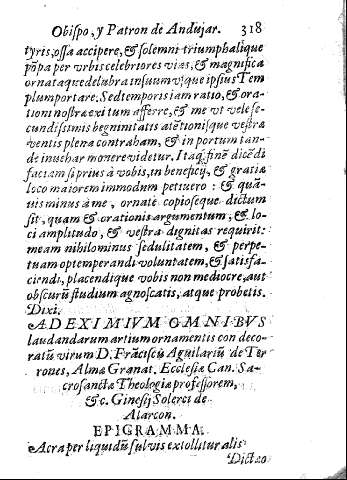 Obispo, y Patron de Andujar. 318
tyris, ossa accipere, & solemni triumphalique
põpa per urbis celebriores vias, & magnifica
ornataque delubra insuum usque ipsius Tem
plum portare. Sed temporis iam ratio, & ora-
tioni nostræ exitum afferre, & me ut velese-
cundissimis begninitatis atẽtionisque vestræ
ventis plena contraham, & in portum tan-
de inuehar monere videtur. Itaq; finẽ dicẽdi
faciam si prius à vobis, in beneficij, & gratiæ
loco maiorem immodum petiuero: & quã-
uis minus à me, ornatè copioseque dictum
sit, quam & orationis argumentum, & lo-
ci amplitudo, & vestra dignitas requirit:
meam nihilominus sedulitatem, & perpe-
tuam optemperandi voluntatem, & satisfa-
ciendi, placendique vobis non mediocre, aut
obscurũ studium agnoscatis, atque probetis.
Dixi.
AD EXIMIVM OMNIBVS
laudandarum artium ornamentis con deco-
ratũ virum D. Frãciscũ Aguilariũ de Ter-
rones, Almæ Granat. Ecclesiæ Can. Sa-
crosanctæ Theologiæ professorem,
& c. Ginesij Solerci de
Alarcon.
EPIGRAMMA.
Acra per liquidũ fulvis extollitur alis
Dictao